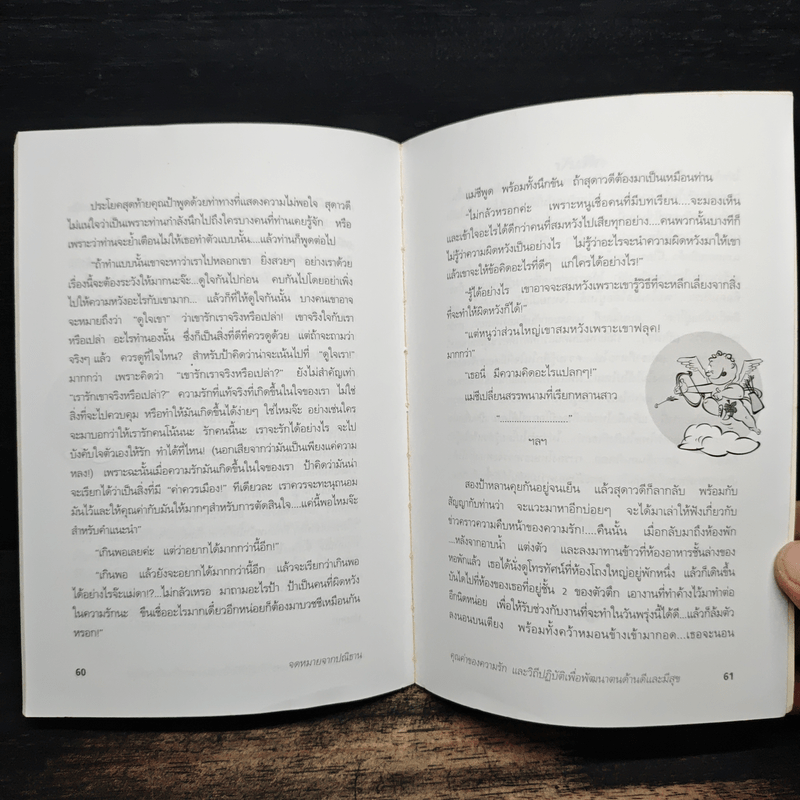 ประโยคสุดท้ายคุณป้าพูดด้วยท่าทางที่แสดงความไม่พอใจ สุดาวดี
ไม่แน่ใจว่าเป็นเพราะท่านกำลังนึกไปถึงใครบางคนที่ท่านเคยรู้จัก หรือ
เพราะว่าท่านจะย้ำเตือนไม่ให้เธอทำตัวแบบนั้น....แล้วท่านก็พูดต่อไป
"ถ้าทำแบบนั้นเขาจะหาว่าเราไปหลอกเขา ยิ่งสวยๆ อย่างเราด้วย
เรื่องนี้จะต้องระวังให้มากนะจ๊ะ...ดูใจกันไปก่อน คบกันไปโดยอย่าเพิ่ง
ไปให้ความหวังอะไรกับเขามาก... แล้วก็ที่ให้ดูใจกันนั้น บางคนเขาอาจ
จะหมายถึงว่า "ดูใจเขา" ว่าเขารักเราจริงหรือเปล่า! เขาจริงใจกับเรา
หรือเปล่า อะไรทำนองนั้น ซึ่งก็เป็นสิ่งที่ดีที่ควรดูด้วย แต่ถ้าจะถามว่า
จริงๆ แล้ว ควรดูที่ใจไหน? สำหรับป้าคิดว่าน่าจะเน้นไปที่ "ดูใจเรา!"
มากกว่า เพราะคิดว่า "เขารักเราจริงหรือเปล่า?" ยังไม่สำคัญเท่า
"เรารักเขาจริงหรือเปล่า?" ความรักที่แท้จริงที่เกิดขึ้นในใจของเรา ไม่ใช่
สิ่งที่จะไปควบคุม หรือทำให้มันเกิดขึ้นได้ง่ายๆ ใช่ไหมจ๊ะ อย่างเช่นใคร
จะมาบอกว่าให้เรารักคนโน้นนะ รักคนนี้นะ เราจะรักได้อย่างไร จะไป
บังคับใจตัวเองให้รัก ทำได้ที่ไหน! (นอกเสียจากว่ามันเป็นเพียงแค่ความ
หลง!) เพราะฉะนั้นเมื่อความรักมันเกิดขึ้นในใจของเรา ป้าคิดว่ามันน่า
จะเรียกได้ว่าเป็นสิ่งที่มี "ค่าควรเมือง!" ทีเดียวละ เราควรจะทะนุถนอม
มันไว้และให้คุณค่ากับมันให้มากๆสำหรับการตัดสินใจ....แค่นี้พอไหมจ๊ะ
สำหรับคำแนะนำ"
"เกินพอเลยค่ะ แต่ว่าอยากได้มากกว่านี้อีก!"
"เกินพอ แล้วยังจะอยากได้มากกว่านี้อีก แล้วจะเรียกว่าเกินพอ
ได้อย่างไรจ๊ะแม่ดา!?...ไม่กลัวเหรอ มาถามอะไรป้า ป้าเป็นคนที่ผิดหวัง
ในความรักนะ ขืนเชื่ออะไรมากเดี๋ยวอีกหน่อยก็ต้องมาบวชชีเหมือนกัน
หรอก!"
60
จดหมายจากปณิธาน
แม่ชีพูด พร้อมทั้งนึกขัน ถ้าสุดาวดีต้องมาเป็นเหมือนท่าน
"ไม่กลัวหรอกค่ะ เพราะหนูเชื่อคนที่มีบทเรียน....จะมองเห็น
และเข้าใจอะไรได้ดีกว่าคนที่สมหวังไปเสียทุกอย่าง....คนพวกนั้นบางทีก็
ไม่รู้ว่าความผิดหวังเป็นอย่างไร ไม่รู้ว่าอะไรจะนำความผิดหวังมาให้เขา
แล้วเขาจะให้ข้อคิดอะไรที่ดีๆ แก่ใครได้อย่างไร!"
"รู้ได้อย่างไร เขาอาจจะสมหวังเพราะเขารู้วิธีที่จะหลีกเลี่ยงจากสิ่ง
ที่จะทำให้ผิดหวังก็ได้!"
"แต่หนูว่าส่วนใหญ่เขาสมหวังเพราะเขาฟลุค!
มากกว่า"
"เธอนี่ มีความคิดอะไรแปลกๆ!"
แม่ชีเปลี่ยนสรรพนามที่เรียกหลานสาว
"........................"
ฯลฯ
สองป้าหลานคุยกันอยู่จนเย็น แล้วสุดาวดีก็ลากลับ พร้อมกับ
สัญญากับท่านว่า จะแวะมาหาอีกบ่อยๆ จะได้มาเล่าให้ฟังเกี่ยวกับ
ข่าวคราวความคืบหน้าของความรัก!....คืนนั้น เมื่อกลับมาถึงห้องพัก
...หลังจากอาบน้ำ แต่งตัว และลงมาทานข้าวที่ห้องอาหารชั้นล่างของ
หอพักแล้ว เธอได้นั่งดูโทรทัศน์ที่ห้องโถงใหญ่อยู่พักหนึ่ง แล้วก็เดินขึ้น
บันไดไปที่ห้องของเธอที่อยู่ชั้น 2 ของตัวตึก เอางานที่ทำค้างไว้มาทำต่อ
อีกนิดหน่อย เพื่อให้รับช่วงกับงานที่จะทำในวันพรุ่งนี้ได้ดี...แล้วก็ล้มตัว
ลงนอนบนเตียง พร้อมทั้งคว้าหมอนข้างเข้ามากอด...เธอจะนอน
คุณค่าของความรัก และวิถีปฏิบัติเพื่อพัฒนาตนด้านดีและมีสุข
61